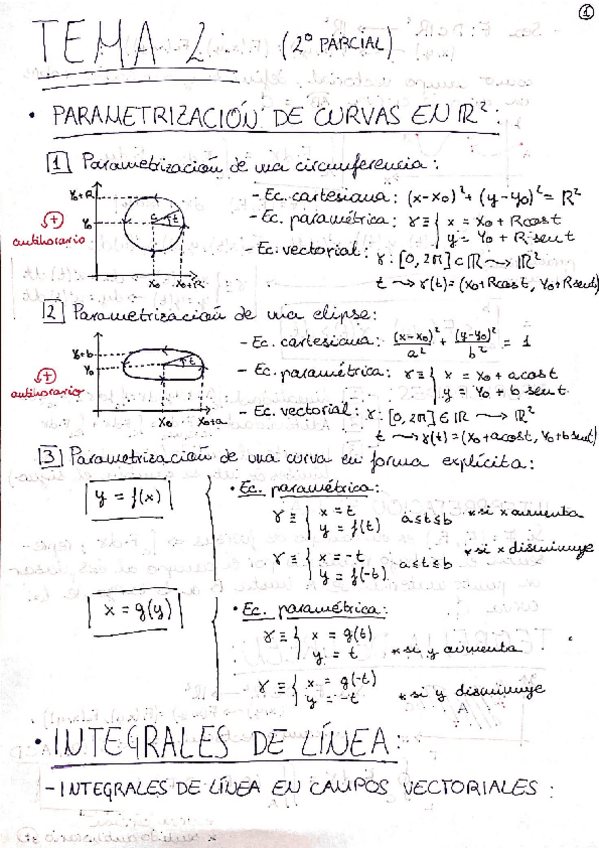 1
TEMA 2 (2º PARCIAL)
• PARAMETRIZACIÓN DE CURVAS EN ℝ²:
1 Parametrización de una circunferencia:
- Ec. cartesiana: (x-x₀)² + (y-y₀)² = R²
- Ec. paramétrica: γ ≡ { x = x₀ + R cost
y = y₀ + R·sent
- Ec. vectorial: γ: [0, 2π] ⊂ ℝ ⤳ ℝ²
t ⤳ γ(t) = (x₀+Rcost, y₀+Rsent)
y₀+R
y₀
c
t
x₀ x₀+R
+
antihorario
2 Parametrización de una elipse:
- Ec. cartesiana: (x-x₀)²/a² + (y-y₀)²/b² = 1
- Ec. paramétrica: γ ≡ { x = x₀ + a cost
y = y₀ + b sent
- Ec. vectorial: γ: [0, 2π] ∈ ℝ ⤳ ℝ²
t ⤳ γ(t) = (x₀+acost, y₀+bsent)
y₀+b
y₀
t
x₀ x₀+a
+
antihorario
3 Parametrización de una curva en forma explícita:
y = f(x)
• Ec. paramétrica:
γ ≡ { x = t
y = f(t) a≤t≤b * si x aumenta
γ ≡ { x = -t
y = f(-t) a≤t≤b * si x disminuye
x = g(y)
• Ec. paramétrica:
γ ≡ { x = g(t)
y = t * si y aumenta
γ ≡ { x = g(-t)
y = -t * si y disminuye
• INTEGRALES DE LÍNEA:
- INTEGRALES DE LÍNEA EN CAMPOS VECTORIALES: